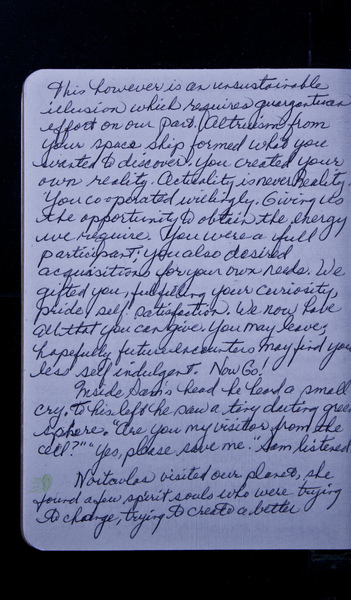 This however is an unsustainable
illusion which requires gargantuan
effort on our part. Altruism from
your space ship formed what you
wanted to discover. You created your
own reality. Actuality is never Reality.
You cooperated willingly. Giving us
the opportunity to obtain the energy
we require. You were a full
participant; you also desired
acquisitions for your own needs. We
gifted you, fulfilling your curiosity,
pride, self satisfaction. We now have
all that you can give. You may leave,
hopefully future encounters may find you
less self indulgent. Now Go!
Inside Sam's head he heard a small
cry. To his left he saw a tiny darting green
sphere. "Are you my visitor from the
cell?" "Yes, please save me." Sam listened
visited our planet, she
found a few spirit souls who were trying
to change, trying to create a better